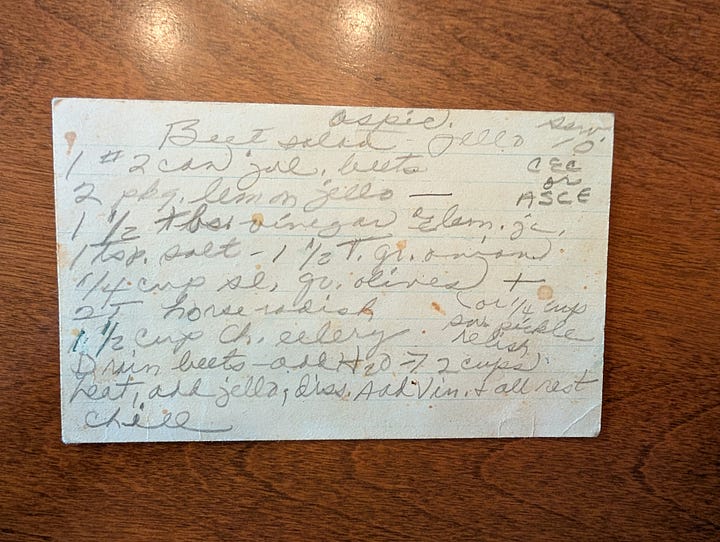 aspic.
Beet salad - jello Serv 10
1 #2 can jul. beets CEC
or
2 pkg. lemon jello — ASCE
1 1/2 tbs. vinegar or lem. jc.
1 tsp. salt - 1 1/2 T. gr. onion
1/4 cup sl. gr. olives +
2 T horseradish (or 1/4 cup
sw. pickle
1 1/2 cup Ch. celery. relish
Drain beets - add H2O = 2 cups
heat, add jello, diss. Add Vin. + all rest
chill